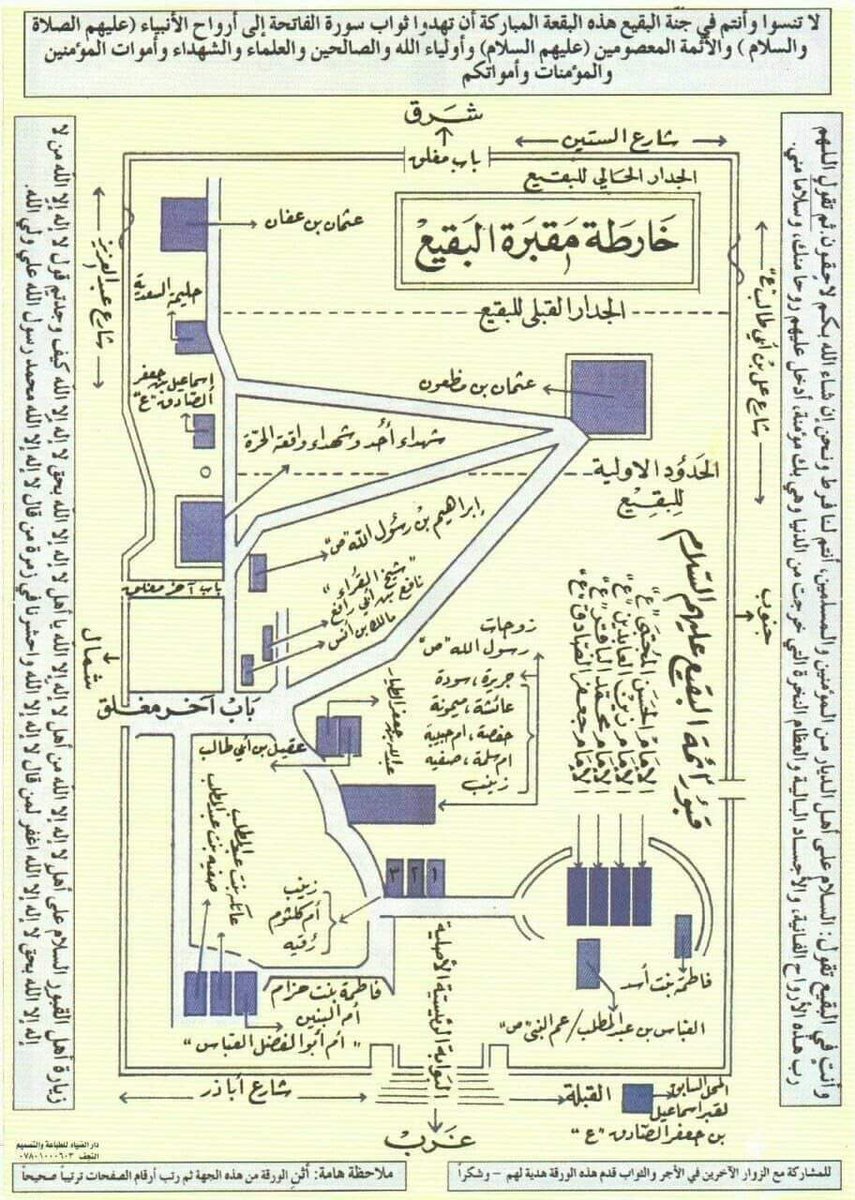 لا تنسوا وأنتم في جنّة البقيع هذه البقعة المباركة أن تهدوا ثواب سورة الفاتحة إلى أرواح الأنبياء (عليهم الصلاة
والسلام ) والأئمة المعصومين (عليهم السلام) وأولياء الله والصالحين والعلماء والشهداء وأموات المؤمنين
والمؤمنات وأمواتكم
وأنت في البقيع تقول: السلام على أهل الديار من المؤمنين والمسلمين، أنتم لنا فرط ونحن إن شاء الله بكم لاحقون. ثم تقول اللهم
رب هذه الأرواح الفانية، والأجساد البالية والعظام النخرة التي خرجت من الدنيا وهي بك مؤمنة، أدخل عليهم روحا منك، وسلاما مني.
زيارة أهل القبور السلام على أهل لا إله إلا الله من أهل لا إله إلا الله يا أهل لا إله إلا الله بحق لا إله إلا الله كيف وجدتم قول لا إله إلا الله من لا
إله إلا الله بحق لا إله إلا الله اغفر لمن قال لا إله إلا الله واحشرنا في زمرة من قال لا إله إلا الله محمد رسول الله علي ولي الله.
شرق
شارع الستين
باب مغلق
الجدار الحالي للبقيع
خارطة مقبرة البقيع
عثمان بن عفان
شارع عبد العزيز
شارع علي بن أبي طالب "ع"
حليمة السعدية
الجدار القبلي للبقيع
اسماعيل بن جعفر
الصادق "ع"
عثمان بن مظعون
شهداء أحد وشهداء واقعة الحرة
الحدود الاولية
للبقيع
إبراهيم بن رسول الله "ص"
"شيخ القراء"
نافع بن أبي رافع
مالك بن أنس
باب آخر مغلق
شمال
جنوب
باب آخر مغلق
قبور أئمة البقيع عليهم السلام
الإمام الحسن المجتبى "ع"
الإمام زين العابدين "ع"
الإمام محمد الباقر "ع"
الإمام جعفر الصادق "ع"
زوجات
رسول الله "ص"
جريرة، سودة
عائشة، ميمونة
حفصة، ام حبيبة
ام سلمة، صفيه
زينب
عبد الله بن جعفر الطيار
عقيل بن أبي طالب
عاتكة بنت عبد المطلب
صفيه بنت عبد المطلب
١
٢
٣
زينب
أم كلثوم
رقيه
فاطمة بنت حزام
أم البنين
"أم أبو الفضل العباس"
البوابة الرئيسية الأصلية
فاطمة بنت أسد
العباس بن عبد المطلب / عم النبي "ص"
شارع أباذر
القبلة
المحل السابق
لقبر اسماعيل
بن جعفر الصادق "ع"
غرب
دار الضياء للطباعة والتصميم
النجف ٠٧٨٠١٠٠٠٦٠٣
للمشاركة مع الزوار الآخرين في الأجر والثواب قدم هذه الورقة هدية لهم - وشكراً
ملاحظة هامة: أثنِ الورقة من هذه الجهة ثم رتب أرقام الصفحات ترتيباً صحيحاً